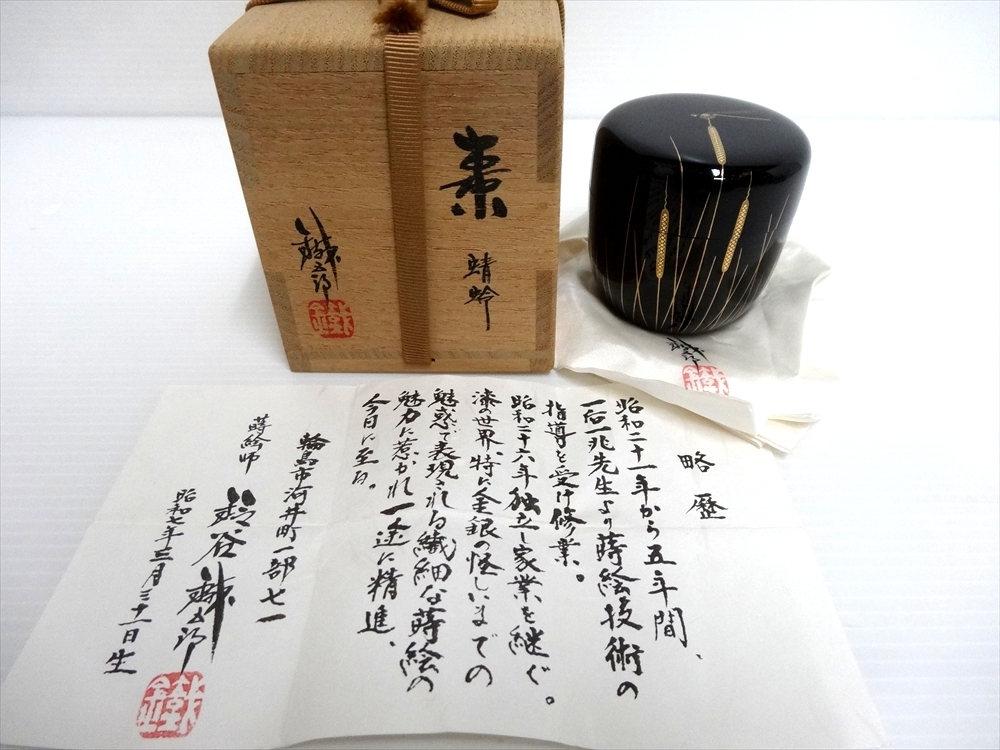 棗
蜻蛉
鐵五郎
鐵
鐵五郎
略歴
昭和二十一年から五年間、
一后一兆先生より蒔絵技術の
指導を受け修業。
昭和二十六年独立し家業を継ぐ。
漆の世界、特に金銀の怪しいまでの
魅惑で表現される繊細な蒔絵の
魅力に惹かれ一途に精進、
今日に至る。
輪島市河井町一部七一
蒔絵師
鈴谷鐵五郎
昭和七年三月三十一日生
鐵